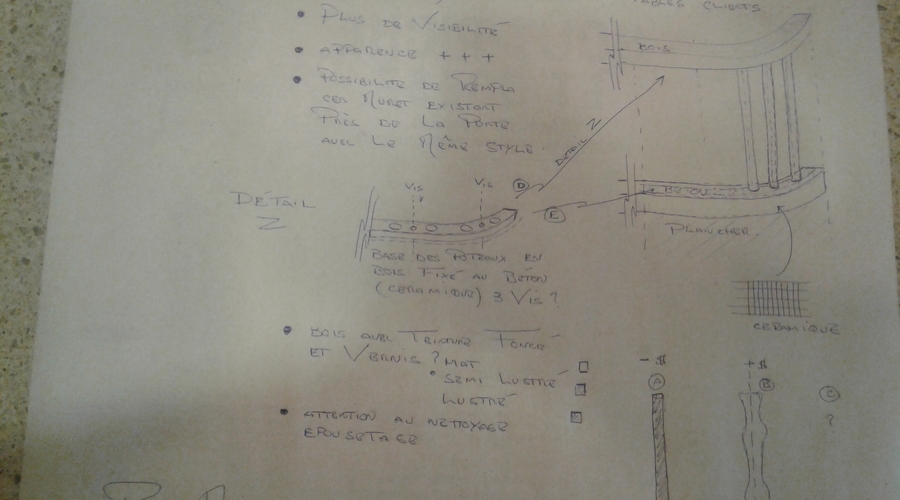 TABLES CLIENTS
• PLUS DE VISIBILITÉ
• APPARENCE + + +
• POSSIBILITÉ DE REMPLA
CER MURET EXISTANT
PRÈS DE LA PORTE
AVEC LE MÊME STYLE
BOIS
DÉTAIL Z
D
E
BÉTON
PLANCHER
CERAMIQUE
DÉTAIL
Z
VIS
VIS
BASE DES POTEAUX EN
BOIS FIXÉ AU BÉTON
(CERAMIQUE) 3 VIS ?
• BOIS AVEC TEINTURE FONCÉ
ET VERNIS ? MAT
• SEMI LUSTRÉ
LUSTRÉ
• ATTENTION AU NETTOYAGE
EPOUSETAGE
- $
A
+ $
B
C
?